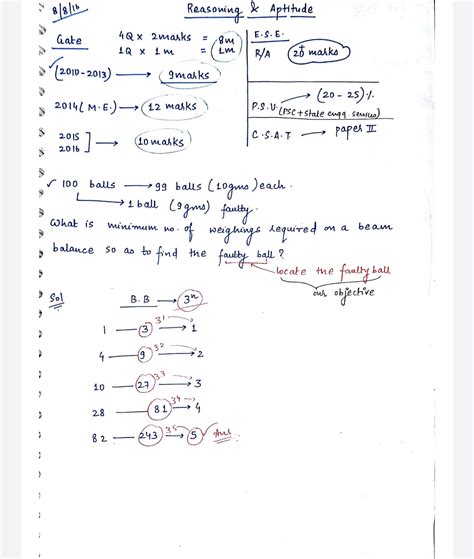 8/8/16
Reasoning & Aptitude
Gate
4Q x 2marks = 8m
1Q x 1m = 1m
(2010-2013) → 9marks
2014 (M.E.) → 12 marks
2015
2016 ] → 10 marks
E.S.E.
R/A (20+ marks)
P.S.U. → (20-25)%
(PSC + State engg. services)
C.S.A.T → paper II
✓ 100 balls → 99 balls (10gms) each.
→ 1 ball (9gms) faulty.
What is minimum no. of weighings required on a beam
balance so as to find the faulty ball?
locate the faulty ball
our objective
Sol
B.B → 3ⁿ
1 — 3 3¹ → 1
4 — 9 3² → 2
10 — 27 3³ → 3
28 — 81 3⁴ → 4
82 — 243 3⁵ → 5 ✓ Ans